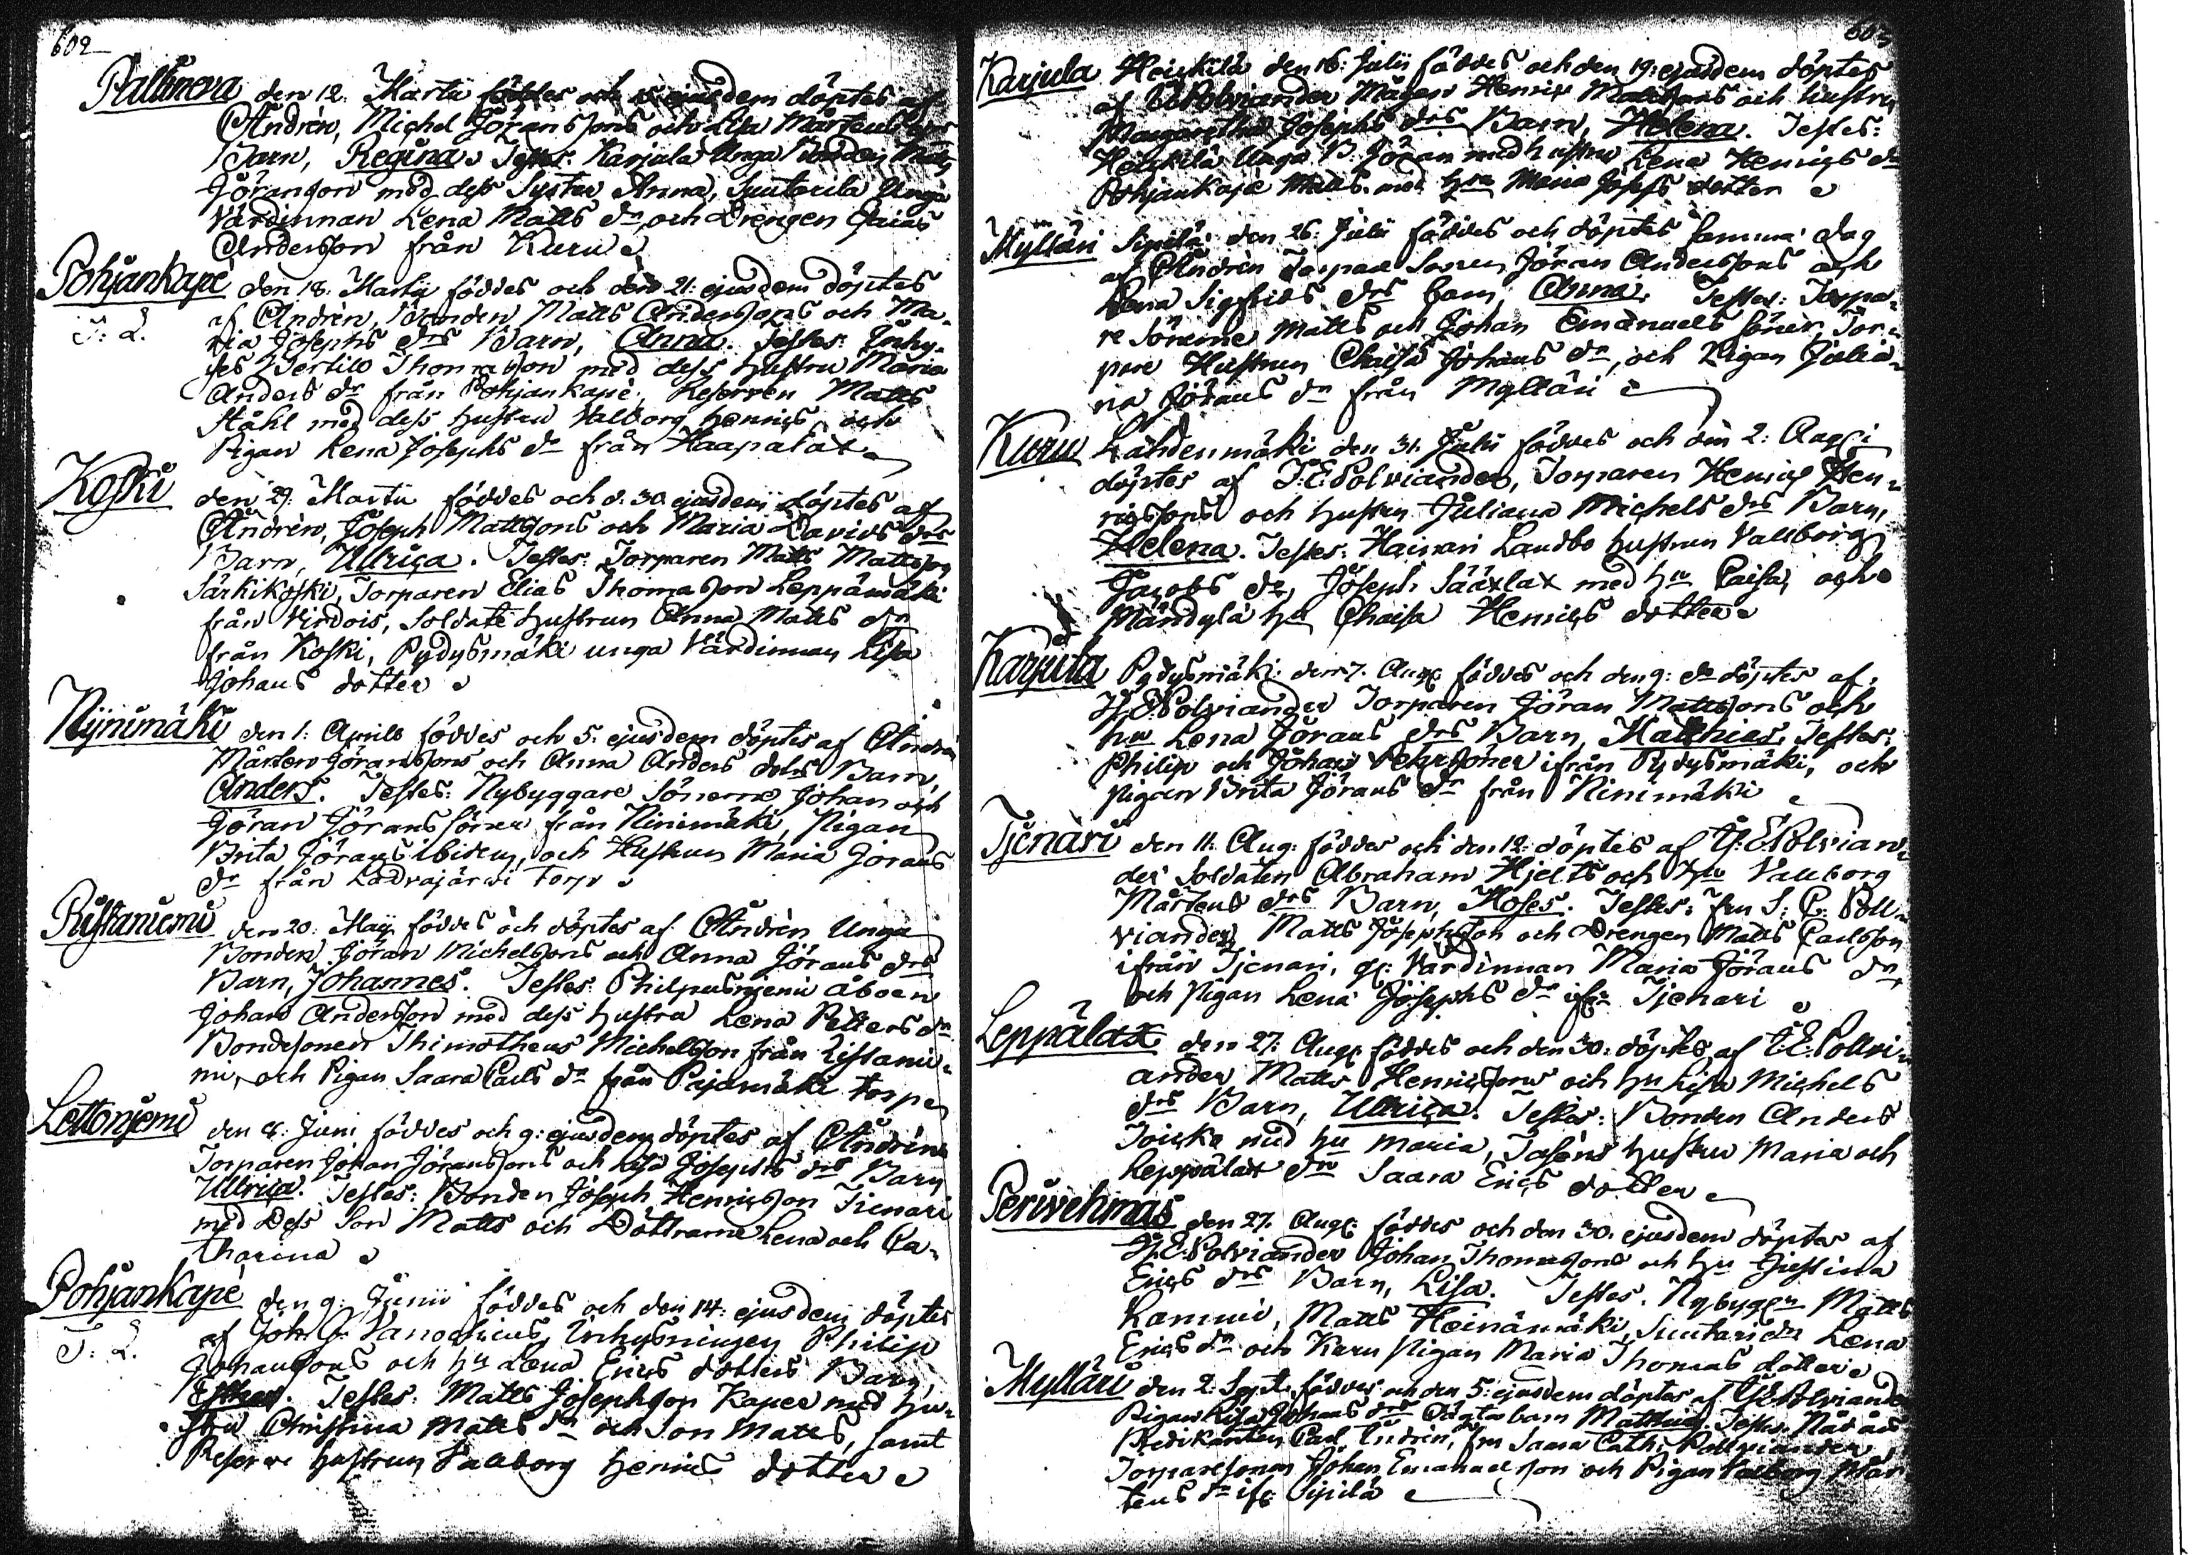 602
Pallineva den 12. Martii föddes och 15 ejusdem döptes af
Andrén, Michel Jöranssons och Lisa Mårtens drs
Barn, Regina. Testes: Karjula Unga Bonden Matts
Jöransson med dess Syster Anna, Suutarila Unga
Värdinnan Lena Matts dr, och Drengen Esaias
Andersson från Kuru
Pohjankapé den 18. Martii föddes och den 21. ejusdem döptes
af Andrén, Bonden Matts Anderssons och Ma-
T: L. ria Josephs drs Barn, Anna. Testes: Inhy-
ses Bertils Thomasson med dess hustru Maria
Anders dr från Pohjankapé, Reserven Matts
Ståhl med dess hustru Valborg Henrics och
Pigan Lena Josephs dr från Haapalax
Koski den 29. Martii föddes och d. 30 ejusdem döptes af
Andrén, Joseph Mattssons och Maria Davids drs
Barn, Ullrica. Testes: Torparen Matts Mattsson
Särkikoski, Torparen Elias Thomasson Leppämäki
från Virdois, Soldats hustrun Anna Matts dr
från Koski, Pydysmäki unga Värdinnan Lisa
Johans dotter
Nijnimäki den 1. Aprils föddes och 5. ejusdem döptes af Andrén
Mårten Jöranssons och Anna Anders dotrs Barn,
Anders. Testes: Nybyggare Sönerne Johan och
Jöran Jörans söner från Ninimäki, Pigan
Brita Jörans ibidem, och Hustrun Maria Jörans
dr från Ladvajärvi torp
Ristaniemi den 20. Maij föddes och döptes af Andrén Unga
Bonden Jöran Michelssons och Anna Jörans drs
Barn, Johannes. Testes: Philpusnjemi åboen
Johan Andersson med dess hustru Lena Petters dr
Bondesonen Thimotheus Michelsson från Ristanie-
mi, och Pigan Saara Carls dr från Pajamäki torp
Lettonjemi den 8. Juni föddes och 9. ejusdem döptes af Andrén
Torparen Johan Jöranssons och Lisa Josephs drs Barn
Ullrica. Testes: Bonden Joseph Henricsson Tienari
med Dess Son Matts och Döttrarne Lena och Ca-
tharina
Pohjankapé den 9. Junii föddes och den 14. ejusdem döptes
T: L. af Joh. G. Vanochius, Inhysningen Philip
Johanssons och hu Lena Erics dotters Barn,
Esther. Testes: Matts Josephsson Kapee med hu-
stru Christina Matts dr och Son Matts, samt
Reserve hustrun Valborg Henrics dotter
603
Karjula Heickilä den 16. Julii föddes och den 19. ejusdem döptes
af Polviander Mågen Henric Mattssons och hustru
Margaretha Josephs drs Barn, Helena. Testes:
Heickilä Unga B. Jöran med hustru Lena Henrics dr
Pohjankapé Matts med hru Maria Josephs dotter
Mylläri Sipilä den 26. Julii föddes och döptes samma dag
af Andrén Torpare Sonen Jöran Anderssons och
Lena Sigfrids drs barn, Anna. Testes: Torpa-
re Sönerne Matts och Johan Emanuels söner, Tor-
pare Hustrun Chaisa Johans dr, och Pigan Julia-
na Jörans dr från Mylläri
Kuru Lähdenmäki den 31. Julii föddes och den 2. Augi
döptes af J: E. Polviander, Torparen Henric Hen-
ricssons och hustru Juliana Michels drs Barn,
Helena. Testes: Hainari Landbo hustrun Vallborg
Jacobs dr, Joseph Sääxlax med hu Caisa, och
Mändylä hu Chaisa Henrics dotter
Karjula Pydysmäki den 7. Augi föddes och den 9. do döptes af
J. E. Polviander Torparen Jöran Mattssons och
hu Lena Jörans drs Barn, Matthias. Testes:
Philip och Johan Pehrssöner ifrån Pydysmäki, och
Pigan Brita Jörans dr från Ninimäki
Tjenäri den 11. Aug. föddes och den 12. döptes af J: E Polvian-
der Soldaten Abraham Hjelts och hu Vallborg
Mårtens drs Barn, Moses. Testes: fru S: C: Poll-
viander, Matts Josephsson och Drengen Matts Carlsson
ifrån Tjenari, gl: Värdinnan Maria Jörans dr,
och Pigan Lena Josephs dr ifr Tjenari
Leppälax den 27. Augi föddes och den 30. döptes af J: E: Pollvi-
ander Matts Henricssons och hu Lisa Michels
drs Barn, Ullrica. Testes: Bonden Anders
Toiska med hu Maria, hustru Maria och
Leppälax dr Saara Erics dotter
Perivehmas den 27. Augi föddes och den 30. ejusdem döptes af
J. E. Polviander Johan Thomassons och hu Justina
Erics drs Barn, Lisa. Testes. Nybygn Matts
Lammi, Matts Heinämäki, Suutari dr Lena
Erics dr och Karu Pigan Maria Thomas dotter
Mylläri den 2. Sept. föddes och den 5. ejusdem döptes af J. E Polviander
Pigan Lisa Johans drs Oägta barn Matthias. Testes: Nåd års
Predikanten Carl Andrén, fru Saara Cath: Pollviander,
Torparesonen Johan Emanuelsson och Pigan Valborg Mår-
tens dr ifr Sipilä